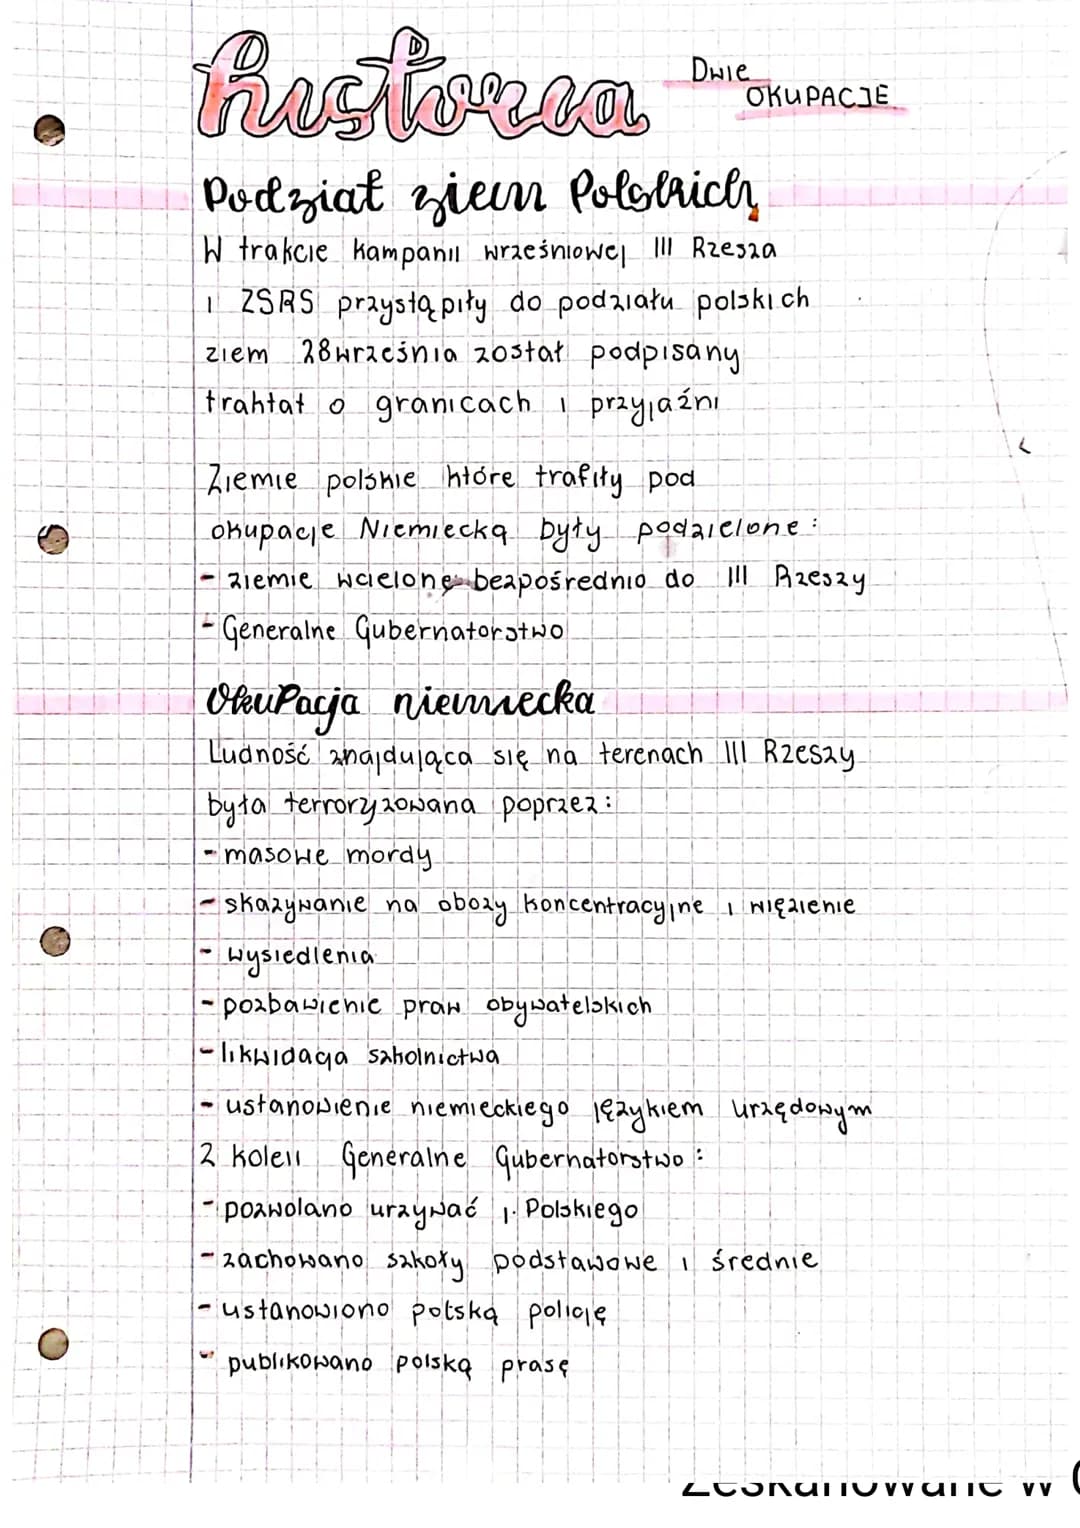 historia
Dwie
OKUPACJE
Podział ziem Polskich
W trakcie kampanii wrześniowej III Rzesza
i ZSRS przystąpiły do podziału polskich
ziem 28września został podpisany
traktat o granicach i przyjaźni
Ziemie polskie które trafiły pod
okupacje Niemiecką były podzielone:
- ziemie wcielone bezpośrednio do III Rzeszy
- Generalne Gubernatorstwo
OkuPacja niemiecka
Ludność znajdująca się na terenach III Rzeszy
była terroryzowana poprzez:
- masowe mordy
- skazywanie na obozy koncentracyjne i więzienie
- wysiedlenia
- pozbawienie praw obywatelskich
- likwidacja szkolnictwa
- ustanowienie niemieckiego językiem urzędowym
Z kolei Generalne Gubernatorstwo:
- pozwolano urzywać j. Polskiego
- zachowano szkoły podstawowe i średnie
- ustanowiono polską policję
- publikowano polską prasę
Zeskanowane w